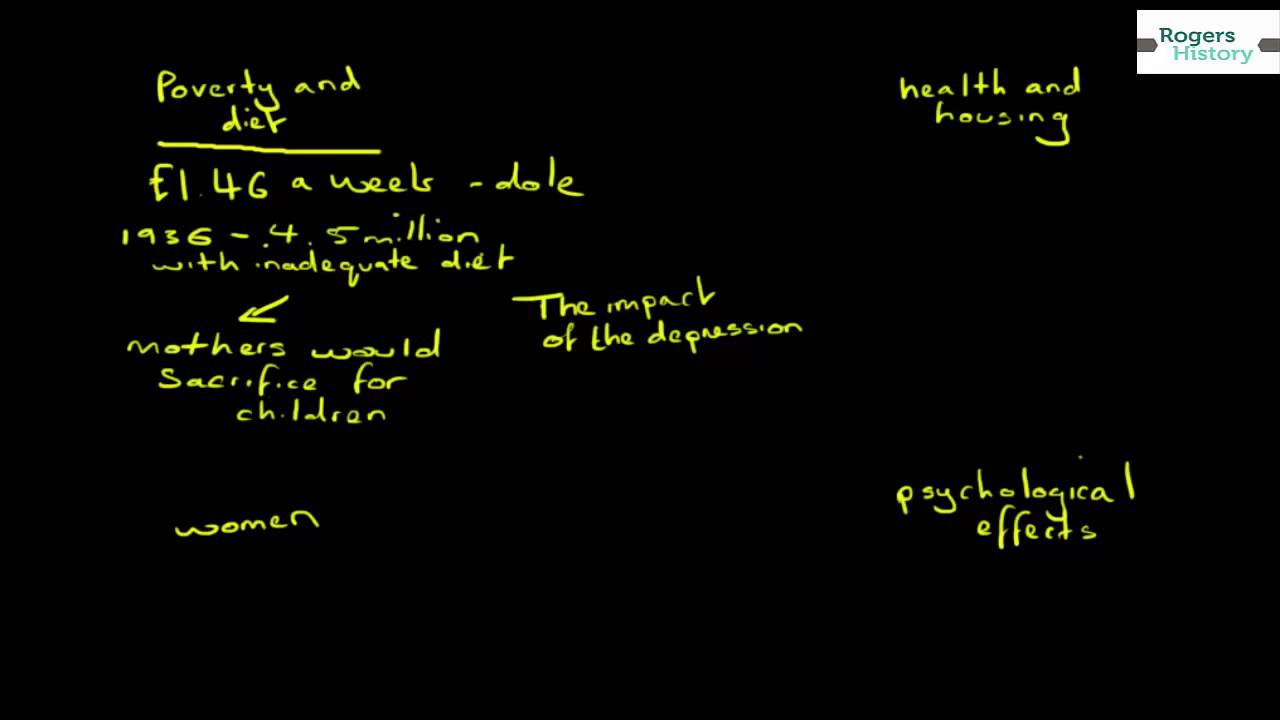 Rogers
History
Poverty and
diet
£1.46 a week - dole
1936 - 4.5 million
with inadequate diet
mothers would
sacrifice for
children
The impact
of the depression
health and
housing
women
psychological
effects